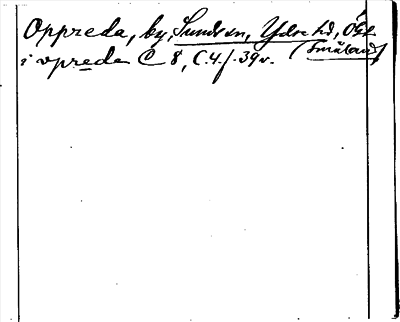 Oppreda, by, Sunds sn, Ydre hd, Ögl.
i vpreda C 8, C.4. f. 39v. (Småland)